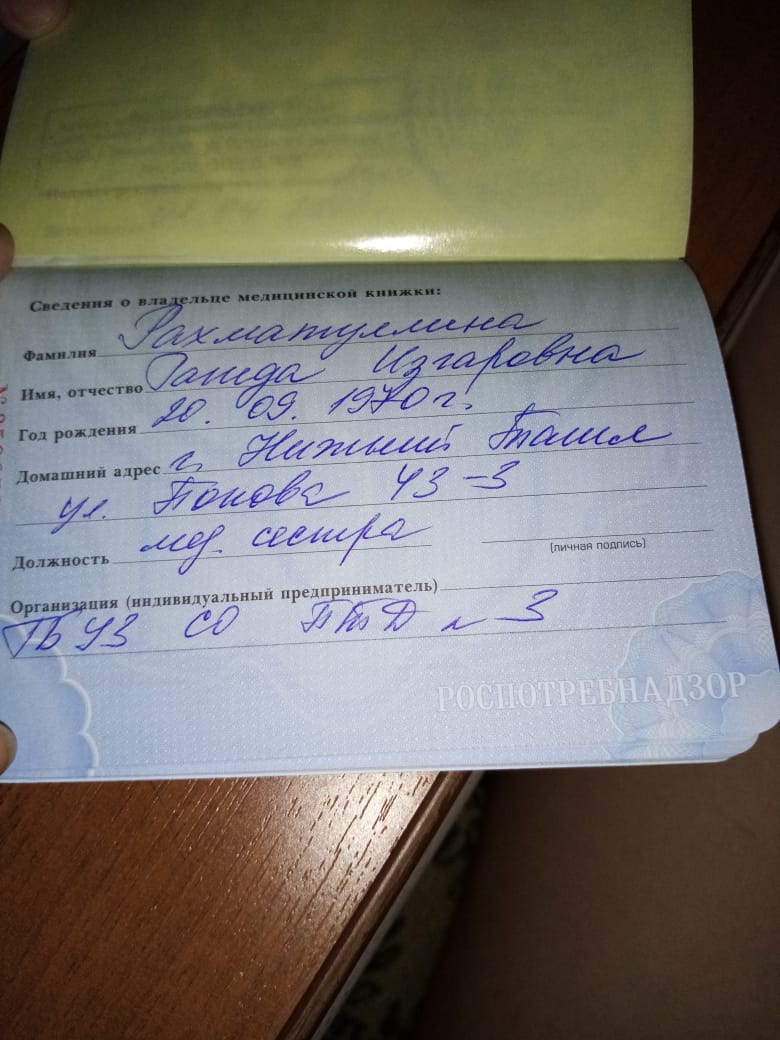 Сведения о владельце медицинской книжки:
Фамилия Рахматуллина
Имя, отчество Рашида Изгаровна
Год рождения 20. 09. 1970 г.
Домашний адрес г. Нижний Тагил
ул. Попова 43-3
Должность мед. сестра
(личная подпись)
Организация (индивидуальный предприниматель)
ГБУЗ СО ПТД № 3
РОСПОТРЕБНАДЗОР